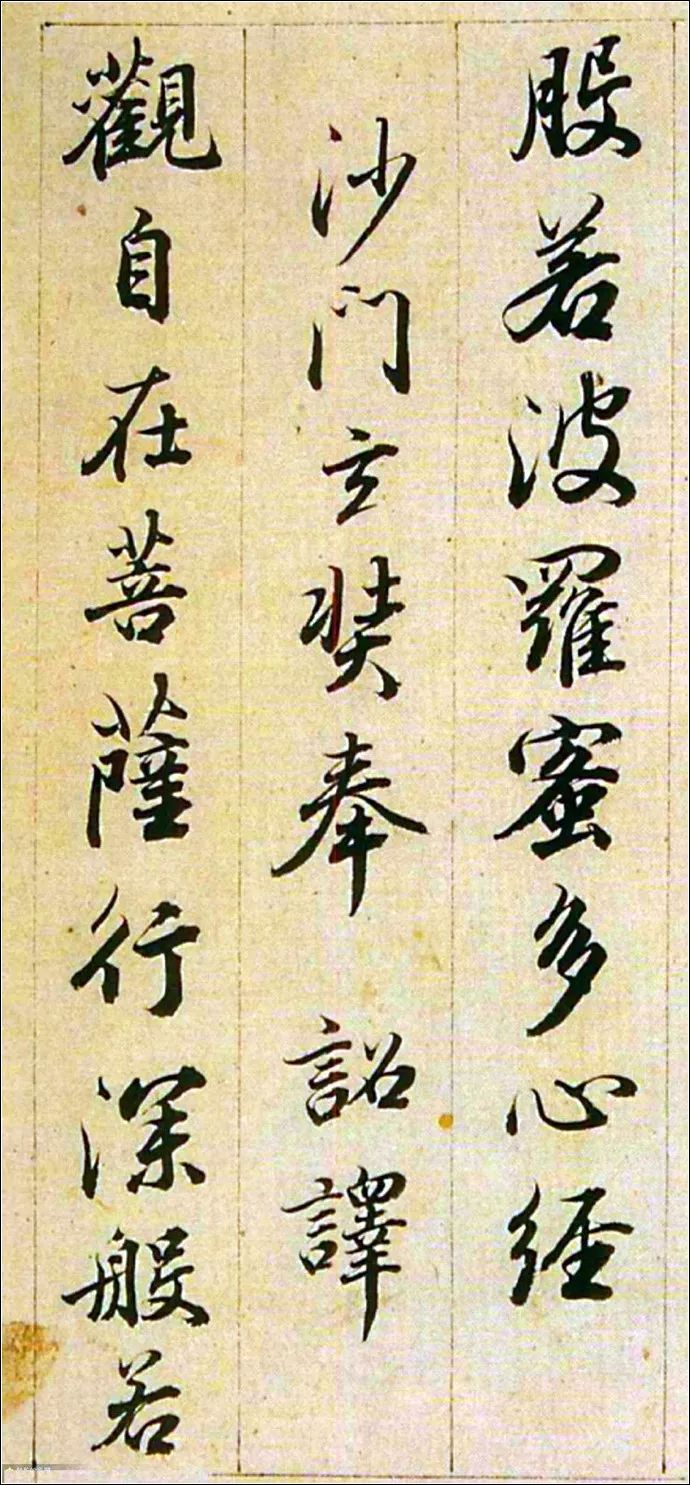 般若波羅蜜多心經
沙門玄奘奉 詔譯
觀自在菩薩行深般若